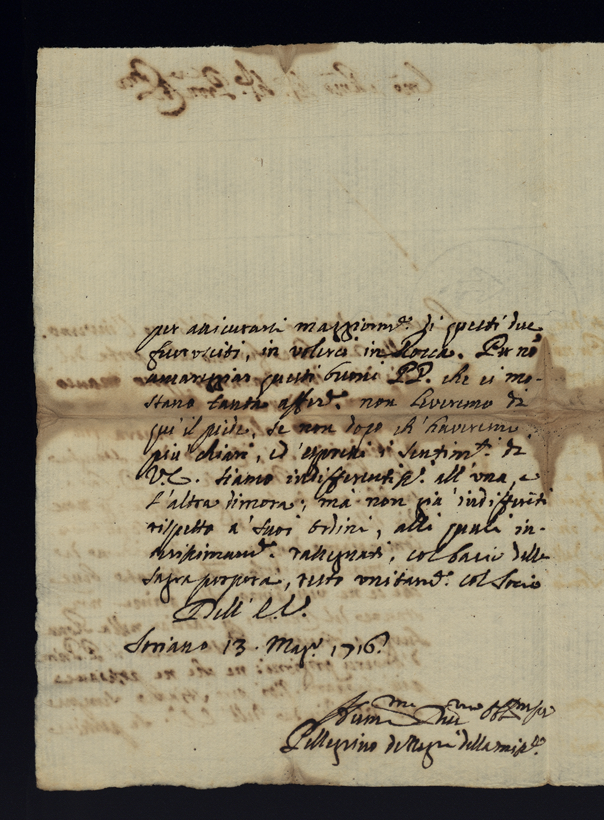 per assicurarsi maggiorm.te di questi due
fuorusciti, in volerci in Rocca. Per nõ
amareggiar questi buoni PP. che ci mo-
strano tanta affez.e non leveremo di
qui il piede, se non dopo ch' haveremo
più chiari, ed' espressi i sentim.ti di
V.E. Siamo indifferenti all' una, e
l'altra dimora; mà non già indifferẽti
rispetto a' suoi ordini, alli quali in-
rassegnati, col bacio della
sagra porpora, resto unitam.te col Socio
Dell' E.V.
Soriano 13. Mag.o 1716.
Hum.mo
Pellegrino